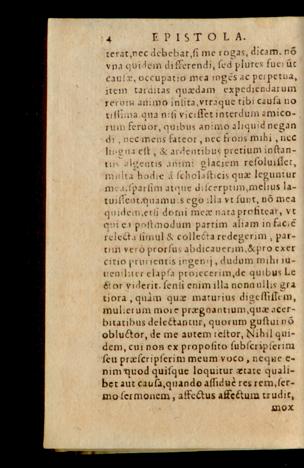 4 EPISTOLA.
terat, nec debebat, si me rogas, dicam. nõ
vna quidem differendi, sed plures fuerũt
causæ, occupatio mea ingẽs ac perpetua,
item tarditas quædam expediendarum
rerum animo insita, vtraque tibi causa no
tissima. qua nisi vicisset interdum amico-
rum feruor, quibus animo aliquid negan
di, nec mens fateor, nec frons mihi, nec
lingua est, & ardentibus pretium instan-
tiis algentis animi glaciem resoluisset,
multa hodie à scholasticis quæ leguntur
mea, sparsim atque discerptim, melius la-
tuissent, quamuis ego illa vt sunt, nõ mea
quidem, etsi domi meæ nata profitear, vt
qui ea postmodum partim aliam in faciẽ
relecta simul & collecta redegerim, par-
tim vero prorsus abdicauerim, & pro exer
citio prurientis ingenij, dudum mihi iu-
ueniliter elapsa proiecerim, de quibus Le
ctor viderit. sensi enim illa nonnullis gra
tiora, quàm quæ maturius digestissem,
mulierum more prægnantium, quæ acer-
bitatibus delectantur, quorum gustui nõ
obluctor, de me autem testor, Nihil qui-
dem, cui non ex proposito subscripserim
seu præscripserim meum voco, neque e-
nim quod quisque loquitur ætate quali-
bet aut causa, quando assiduè res rem, ser-
mo sermonem, affectus affectum trudit,
mox